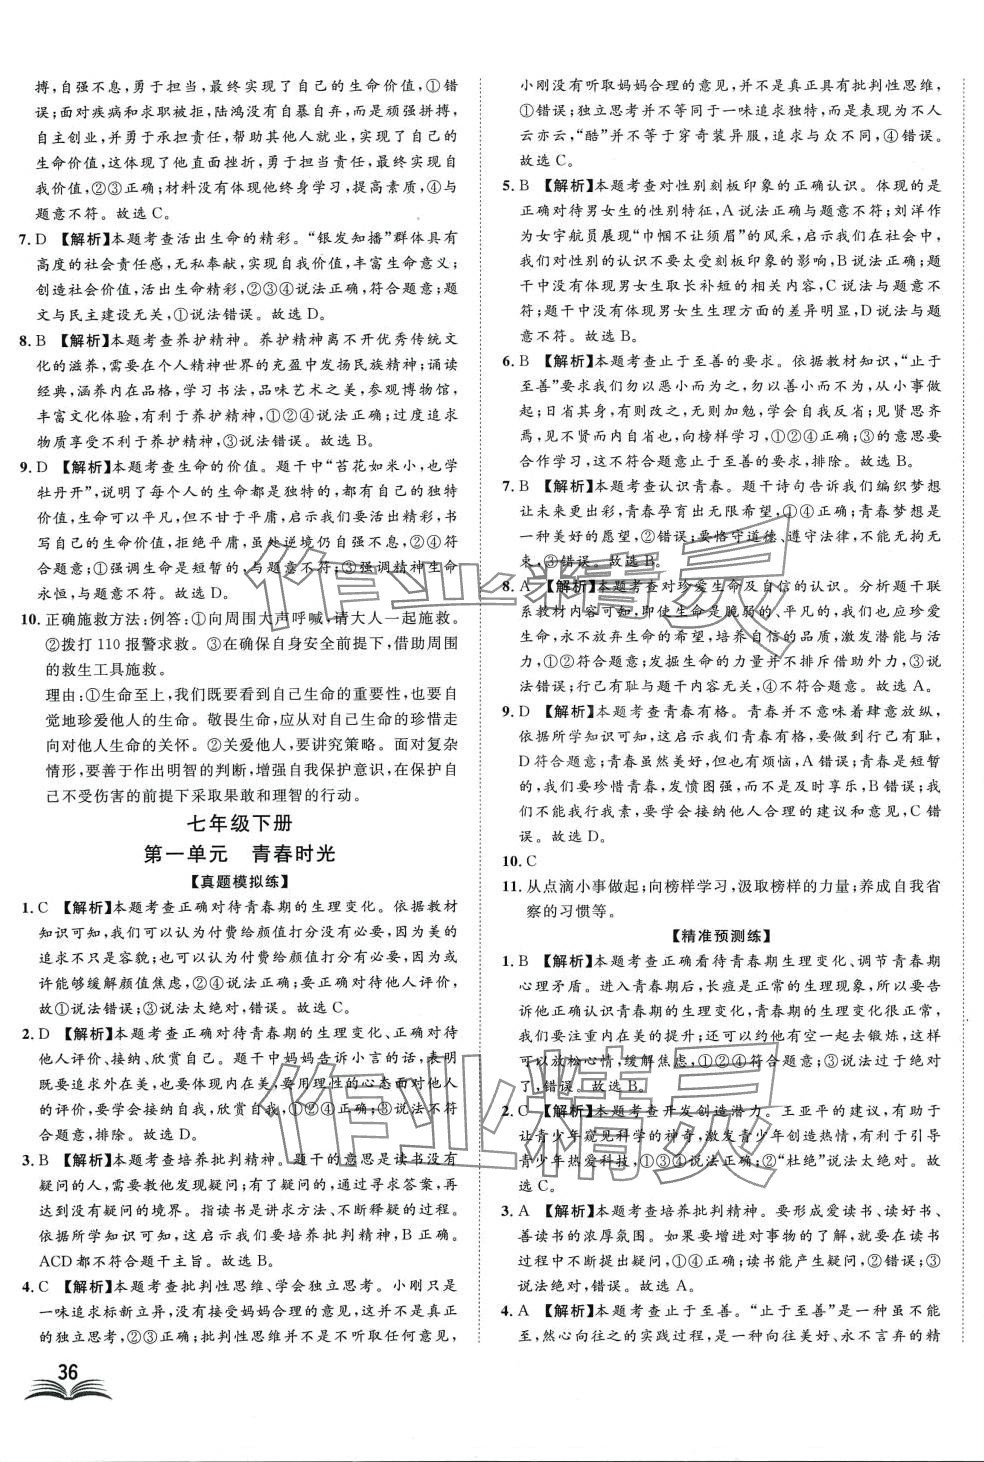 搏，自强不息，勇于担当，最终实现了自己的生命价值，①错
误；面对疾病和求职被拒，陆鸿没有自暴自弃，而是顽强拼搏，
自主创业，并勇于承担责任，帮助其他人就业，实现了自己的
生命价值，这体现了他直面挫折，勇于担当责任，最终实现自
己的生命价值，②③正确；材料没有体现他终身学习，提高素质，④与
题意不符。故选 C。
7. D 【解析】本题考查活出生命的精彩。“银发知播”群体具有
高度的社会责任感，无私奉献，实现自我价值，丰富生命意义；
创造社会价值，活出生命精彩，②③④说法正确，符合题意；题
文与民主建设无关，①说法错误。故选 D。
8. B 【解析】本题考查养护精神。养护精神离不开优秀传统文
化的滋养，需要在个人精神世界的充盈中发扬民族精神；诵读
经典，涵养内在品格，学习书法，品味艺术之美，参观博物馆，
丰富文化体验，有利于养护精神，①②④说法正确；过度追求
物质享受不利于养护精神，③说法错误。故选 B。
9. D 【解析】本题考查生命的价值。题干中“苔花如米小，也学
牡丹开”，说明了每个人的生命都是独特的，都有自己的独特
价值，生命可以平凡，但不甘于平庸，启示我们要活出精彩，书
写自己的生命价值，拒绝平庸，虽处逆境仍自强不息，②④符
合题意；①强调生命是短暂的，与题意不符；③强调精神生命
永恒，与题意不符。故选 D。
10. 正确施救方法：例答：①向周围大声呼喊，请大人一起施救。
②拨打 110 报警求救。③在确保自身安全前提下，借助周围
的救生工具施救。
理由：①生命至上，我们既要看到自己生命的重要性，也要自
觉地珍爱他人的生命。敬畏生命，应从对自己生命的珍惜走
向对他人生命的关怀。②关爱他人，要讲究策略。面对复杂
情形，要善于作出明智的判断，增强自我保护意识，在保护自
己不受伤害的前提下采取果敢和理智的行动。
七年级下册
第一单元 青春时光
【真题模拟练】
1. C 【解析】本题考查正确对待青春期的生理变化。依据教材
知识可知，我们可以认为付费给颜值打分没有必要，因为美的
追求不只是外表，也可以认为付费给颜值打分有必要，因为或
许能够缓解颜值焦虑，②④说法正确；要正确对待他人评价，
故①说法错误；③说法太绝对，错误。故选 C。
2. D 【解析】本题考查正确对待青春期的生理变化、正确对待
他人评价、接纳、欣赏自己。题干中妈妈告诉小言的话，表明
既要追求外在美，也要体现内在美，要用理性的心态面对他人
的评价，要学会接纳自我，欣赏自我，①②④正确；③说法不符
合题意，排除。故选 D。
3. B 【解析】本题考查培养批判精神。题干的意思是读书没有
疑问的人，需要教他发现疑问；有了疑问，通过寻求答案，再
达到没有疑问的境界。指读书是讲求方法、不断释疑的过程。
依据所学知识可知，这启示我们要培养批判精神，B 符合题意。
ACD 都不符合题干主旨。故选 B。
4. C 【解析】本题考查批判性思维、学会独立思考。小刚只是
一味追求标新立异，没有接受妈妈合理的意见，并不是真正
的独立思考，②③正确；批判性思维并不是不听取任何意见，
小刚没有听取妈妈合理的意见，并不是真正具有批判性思维，
①错误；独立思考并不等同于一味追求独特，而是表现为不人
云亦云，“酷”并不等于穿奇装异服，追求与众不同，④错误。
故选 C。
5. B 【解析】本题考查对性别刻板印象的正确认识。体现的是
正确对待男女生的性别特征，A 说法正确与题意不符；刘洋作
为女宇航员展现“巾帼不让须眉”的风采，启示我们在社会中，
我们对性别的认识不要太受刻板印象的影响，B 说法正确；题
干中没有体现男女生取长补短的相关内容，C 说法与题意不
符；题干中没有体现男女生生理方面的差异明显，D 说法与题
意不符。故选 B。
6. B 【解析】本题考查止于至善的要求。依据教材知识，“止于
至善”要求我们勿以恶小而为之，勿以善小而不为，从小事做
起；日省其身，有则改之，无则加勉，学会自我反省；见贤思齐
焉，见不贤而内自省也，向榜样学习，①②④正确；③的意思要
合作学习，这不符合题干止于至善的要求，排除。故选 B。
7. B 【解析】本题考查认识青春。题干诗句告诉我们编织梦想
让未来更出彩，青春孕育出无限希望，①④正确；青春梦想是
一种美好的愿望，②错误；要恪守道德、遵守法律，不能无拘无
束，③错误。故选 B。
8. A 【解析】本题考查对珍爱生命及自信的认识。分析题干联
系教材内容可知，即使生命是脆弱的、平凡的，我们也应珍爱
生命，永不放弃生命的希望，培养自信的品质，激发潜能与活
力，①②符合题意；发掘生命的力量并不排斥借助外力，③说
法错误；行己有耻与题干内容无关，④不符合题意。故选 A。
9. D 【解析】本题考查青春有格。青春并不意味着肆意放纵，
依据所学知识可知，这启示我们青春有格，要做到行己有耻，
D 符合题意；青春虽然美好，但也有烦恼，A 错误；青春是短暂
的，我们要珍惜青春、发愤图强，而不是及时享乐，B 错误；我
们不能我行我素，要学会接纳他人合理的建议和意见，C 错
误。故选 D。
10. C
11. 从点滴小事做起；向榜样学习，汲取榜样的力量；养成自我省
察的习惯等。
【精准预测练】
1. B 【解析】本题考查正确看待青春期生理变化、调节青春期
心理矛盾。进入青春期后，长痘是正常的生理现象，所以要告
诉他正确认识青春期的生理变化，青春期生理变化很正常，
我们要注重内在美的提升；还可以约他有空一起去锻炼，这样
可以放松心情，缓解焦虑，①②④符合题意；③说法过于绝对
了，错误。故选 B。
2. C 【解析】本题考查开发创造潜力。王亚平的建议，有助于
让青少年窥见科学的神奇，激发青少年创造热情，有利于引导
青少年热爱科技，①③④说法正确；②“杜绝”说法错误。故
选 C。
3. A 【解析】本题考查培养批判精神。要形成爱读书、读好书、
善读书的浓厚氛围。如果要增进对事物的了解，就要在读书
过程中不断提出疑问，①④正确；读书能产生疑问，②错误；③
说法绝对，错误。故选 A。
4. A 【解析】本题考查止于至善。“止于至善”是一种虽不能
至，然心向往之的实践过程，是一种向往美好、永不言弃的精
36
作业精灵
作业精灵